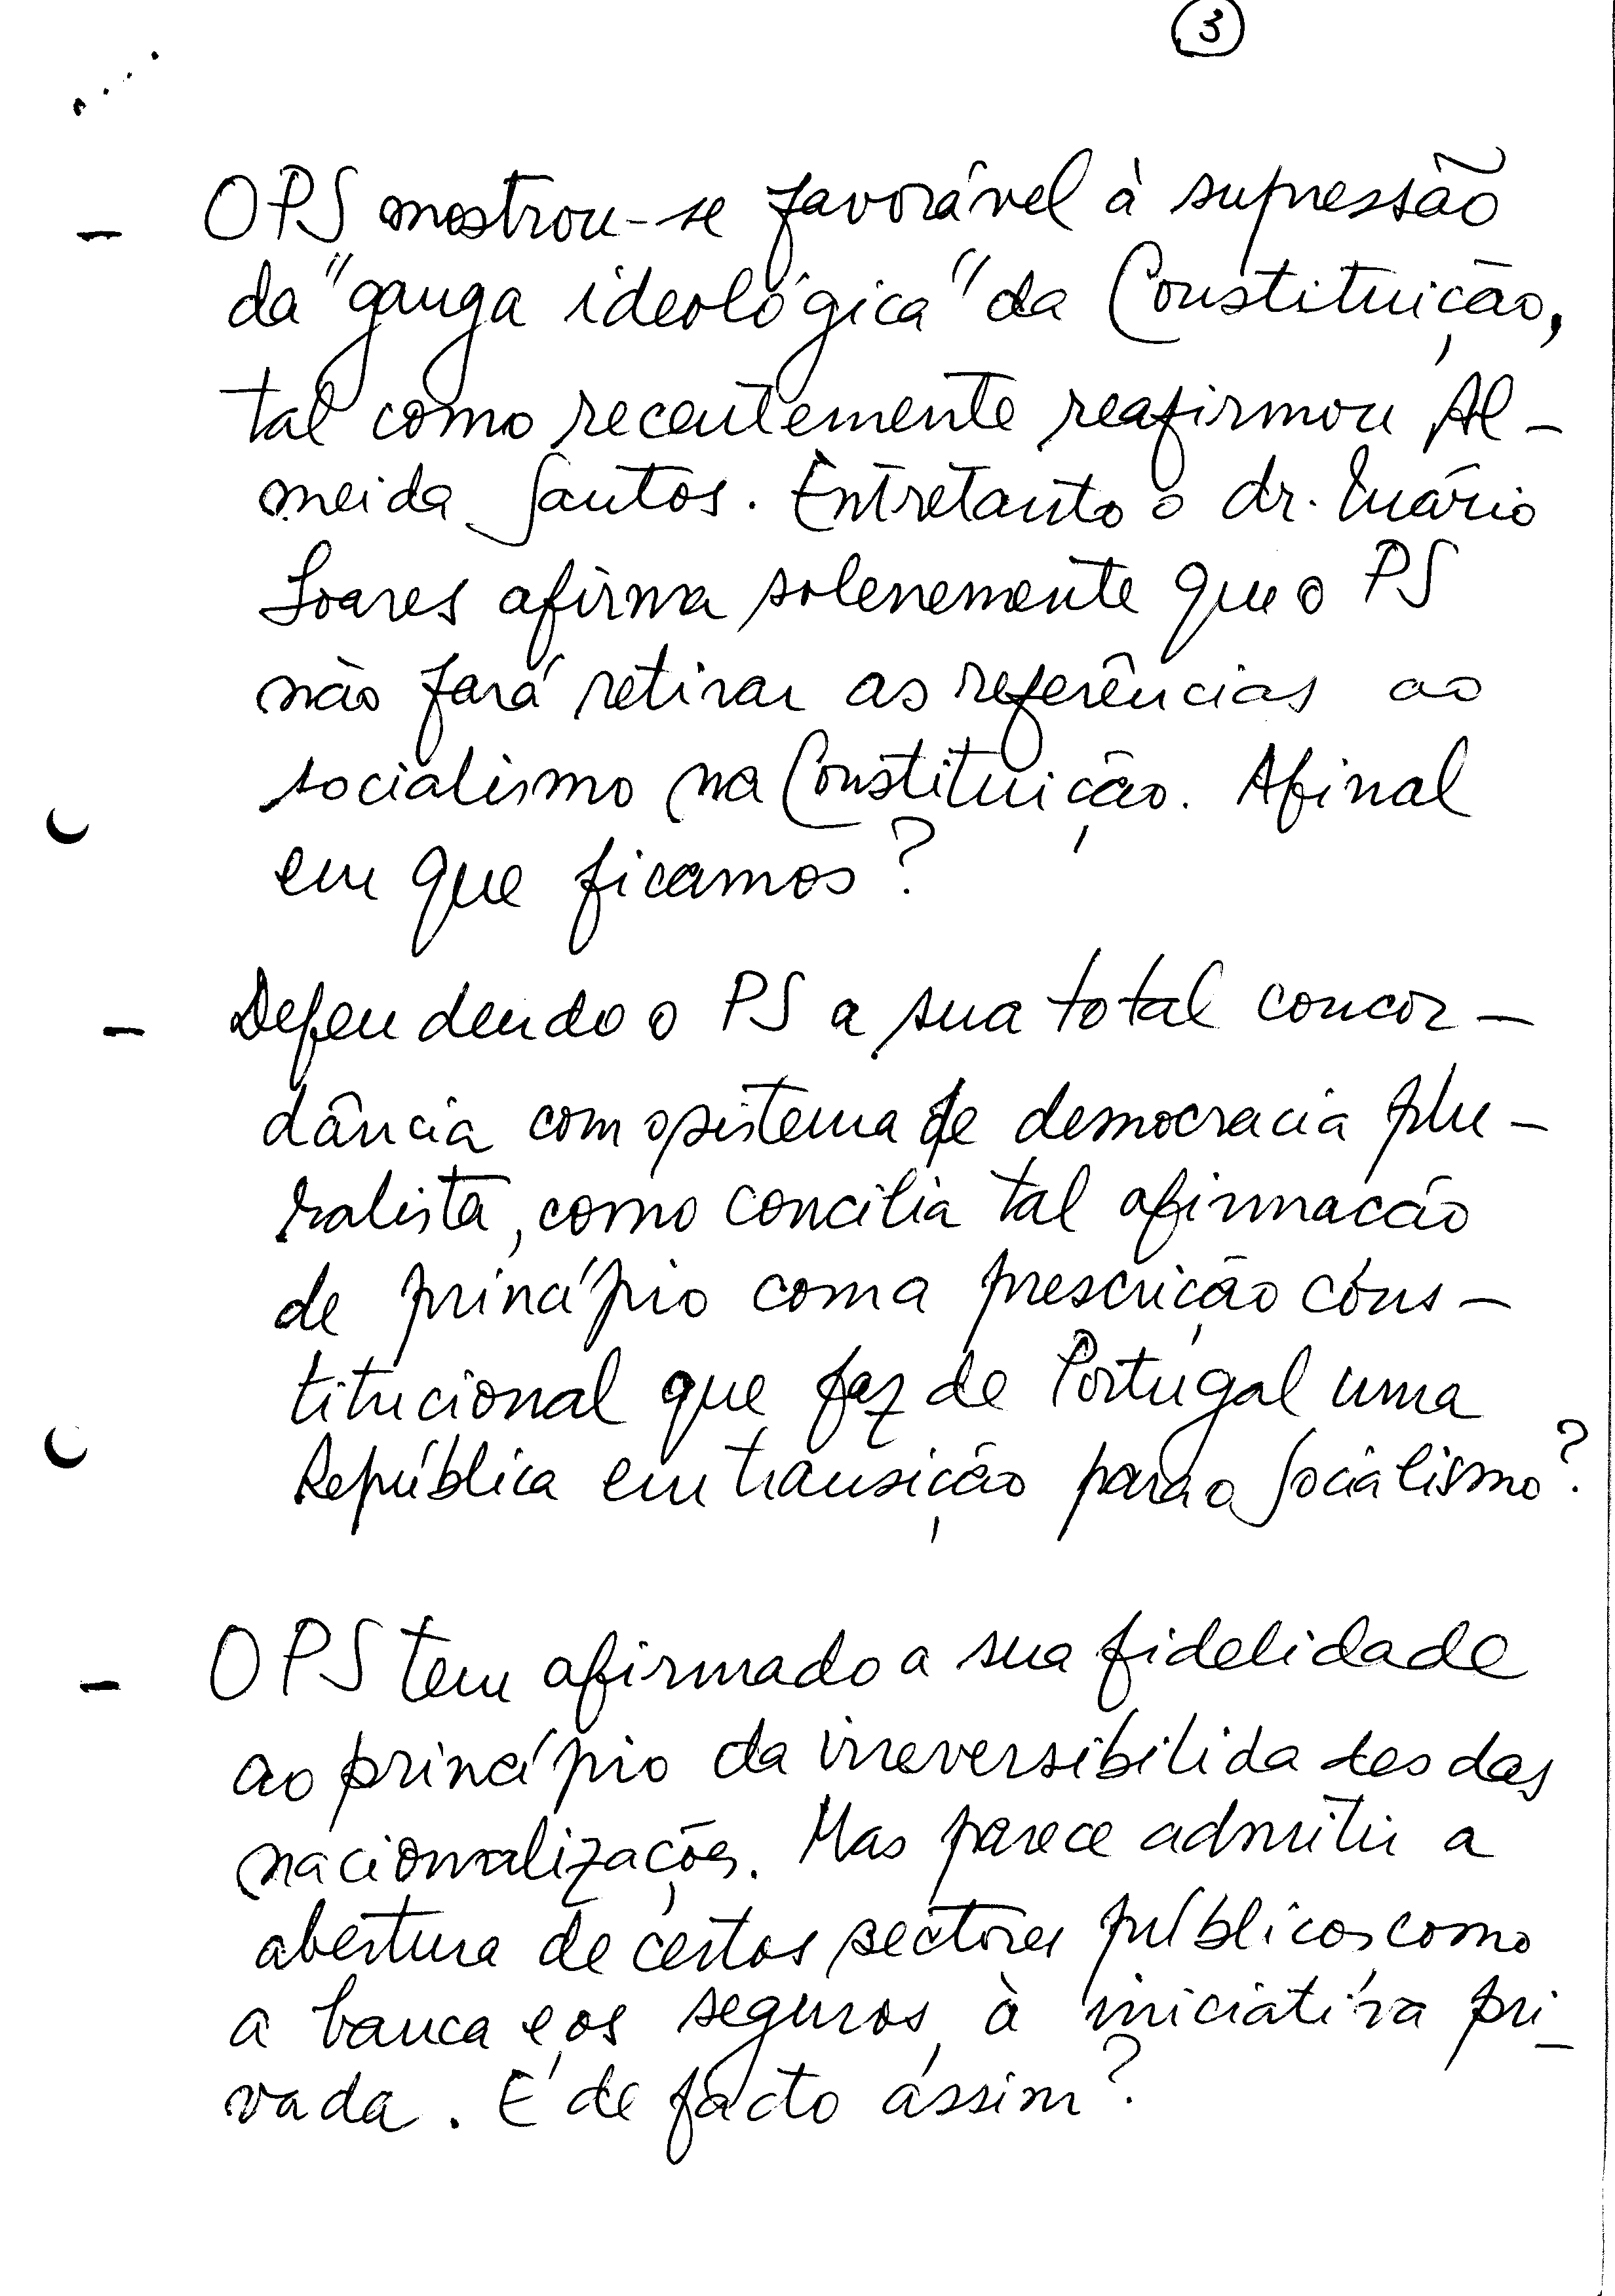 3
- O PS mostrou-se favorável à supressão
da "ganga ideológica" da Constituição,
tal como recentemente reafirmou Al-
meida Santos. Entretanto o dr. Mário
Soares afirma solenemente que o PS
não fará retirar as referências ao
socialismo na Constituição. Afinal
em que ficamos?
- Defendendo o PS a sua total concor-
dância com o sistema de democracia plu-
ralista, como concilia tal afirmação
de princípio com a prescrição cons-
titucional que faz de Portugal uma
República em transição para o Socialismo?
- O PS tem afirmado a sua fidelidade
ao princípio da irreversibilidades das
nacionalizações. Mas parece admitir a
abertura de certos sectores públicos, como
a banca e os seguros, à iniciativa pri-
vada. É de facto assim?